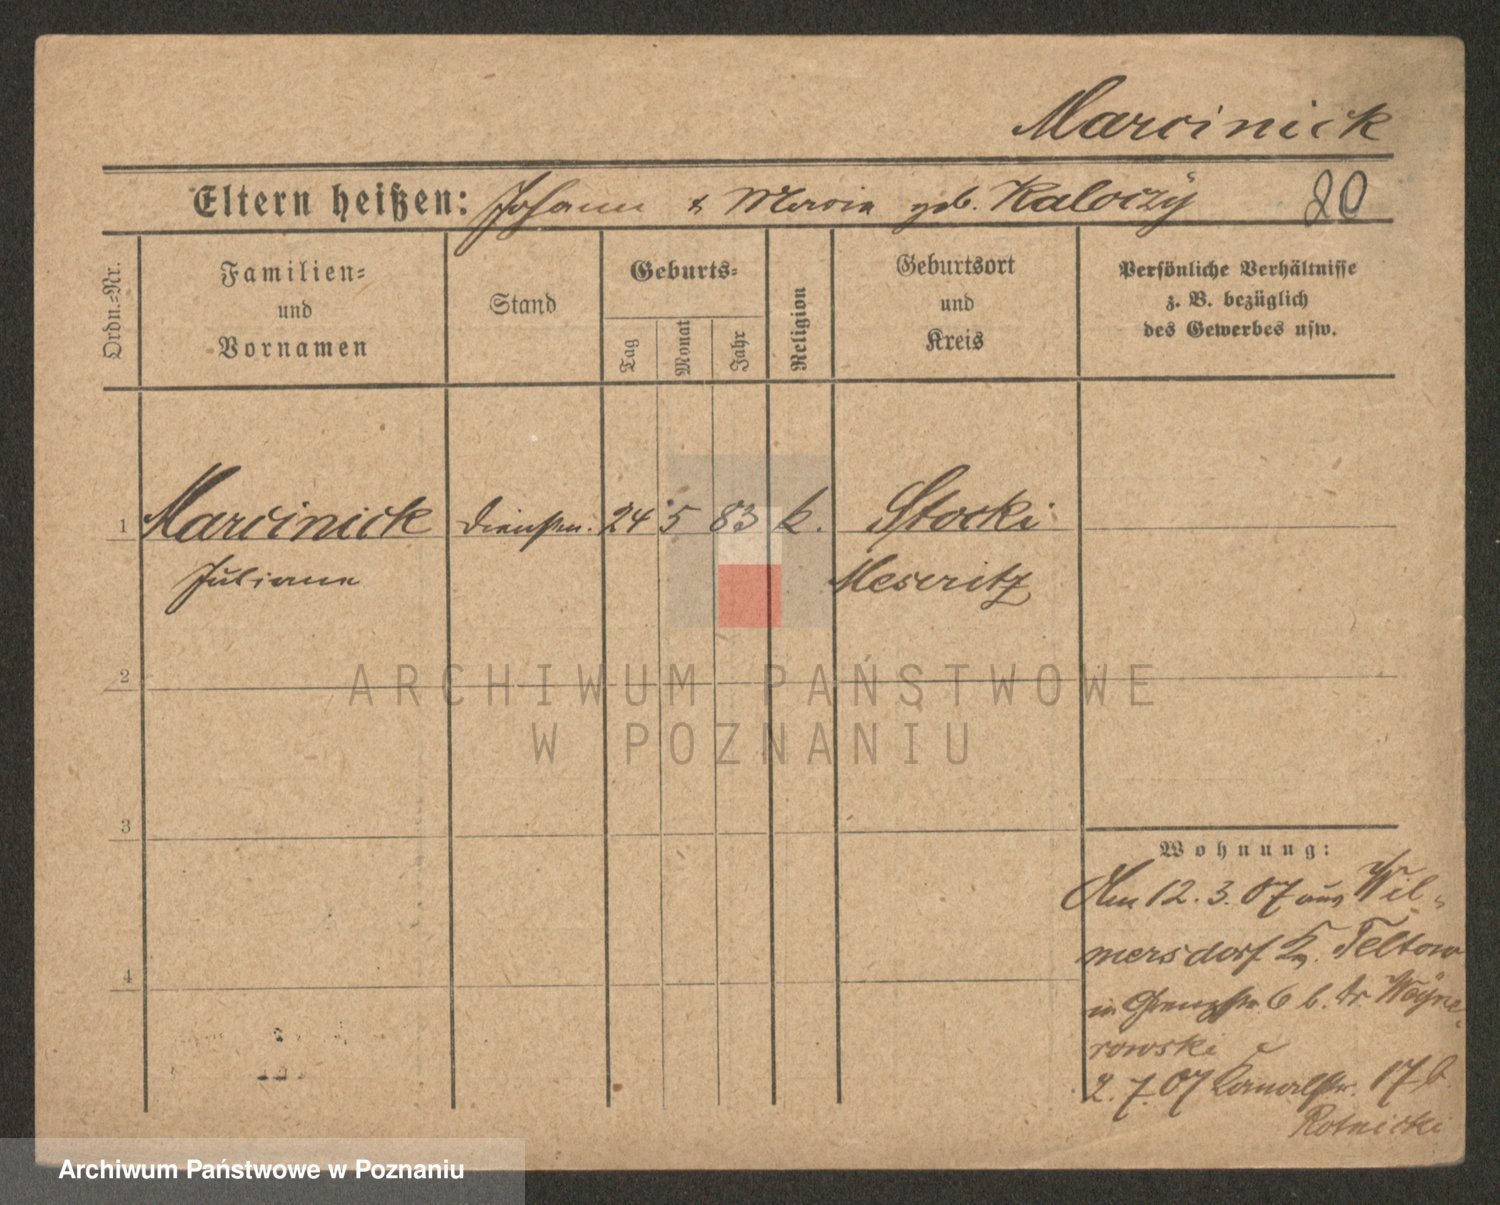 Marcinick
Eltern heißen: Johann & Maria geb. Kaloczÿ 20
Ordn.-Nr.
Familien-
und
Vornamen
Stand
Geburts-
Tag
Monat
Jahr
Religion
Geburtsort
und
Kreis
Persönliche Verhältnisse
z. B. bezüglich
des Gewerbes usw.
1 Marcinick Dienstm. 24 5 83 k. Stocki
Juliane Meseritz
2
ARCHIWUM PAŃSTWOWE
W POZNANIU
3
Wohnung:
Am 12. 3. 07 aus Wil-
mersdorf Kr. Teltow
4
in 6 b. Dr
rowski
2. 7. 07 Kanalstr. 17 b.
Rotnicki
Archiwum Państwowe w Poznaniu